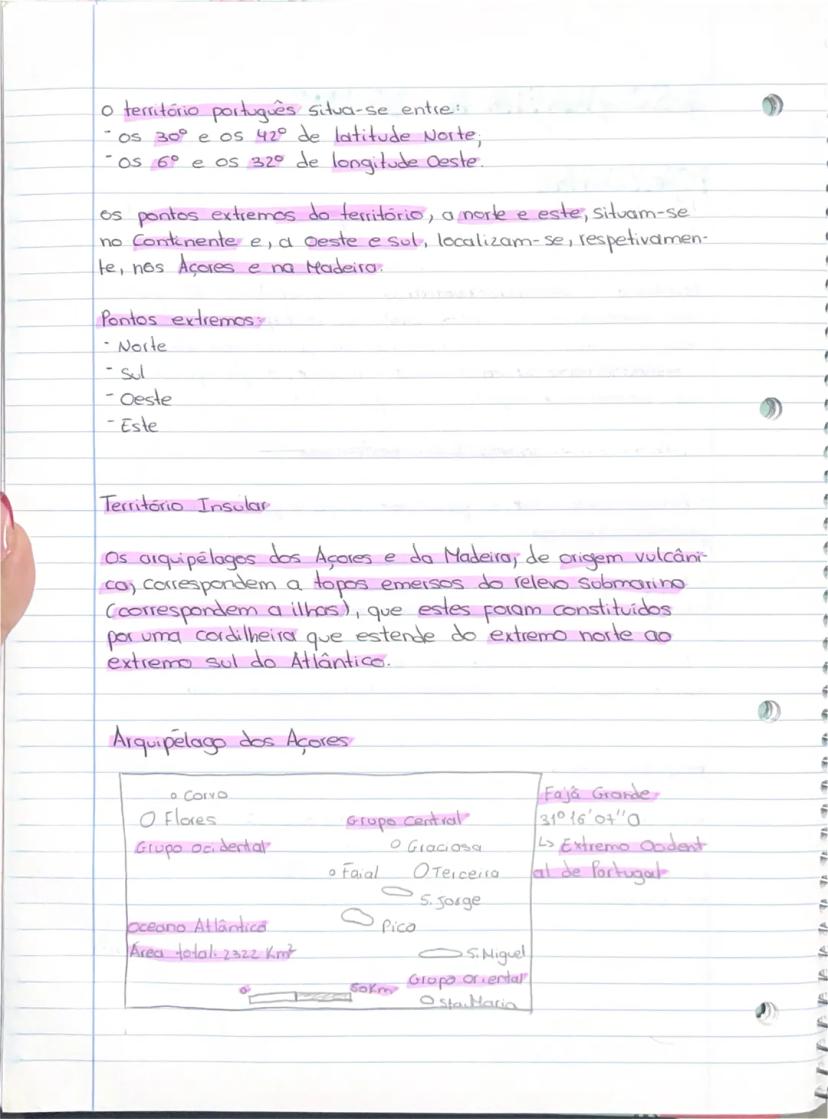 O território português situa-se entre:
- os 30º e os 42º de latitude Norte;
- os 6º e os 32º de longitude Oeste.
Os pontos extremos do território, a norte e este, situam-se
no Continente e, a Oeste e sul, localizam-se, respetivamen-
te, nos Açores e na Madeira.
Pontos extremos:
- Norte
- Sul
- Oeste
- Este
Território Insular
Os arquipélagos dos Açores e da Madeira, de origem vulcâni-
ca, correspondem a topos emersos do relevo submarino
(correspondem a ilhas), que estes foram constituídos
por uma cordilheira que estende do extremo norte ao
extremo sul do Atlântico.
Arquipélago dos Açores
Corvo
Flores
Grupo Ocidental
Grupo Central
Graciosa
Faial
Terceira
S. Jorge
Pico
Oceano Atlântico
Área total: 2322 Km²
S. Miguel
Grupo oriental
Sta. Maria
0 50Km
Fajã Grande
31º16'07''O
↳ Extremo Ocident
al de Portugal